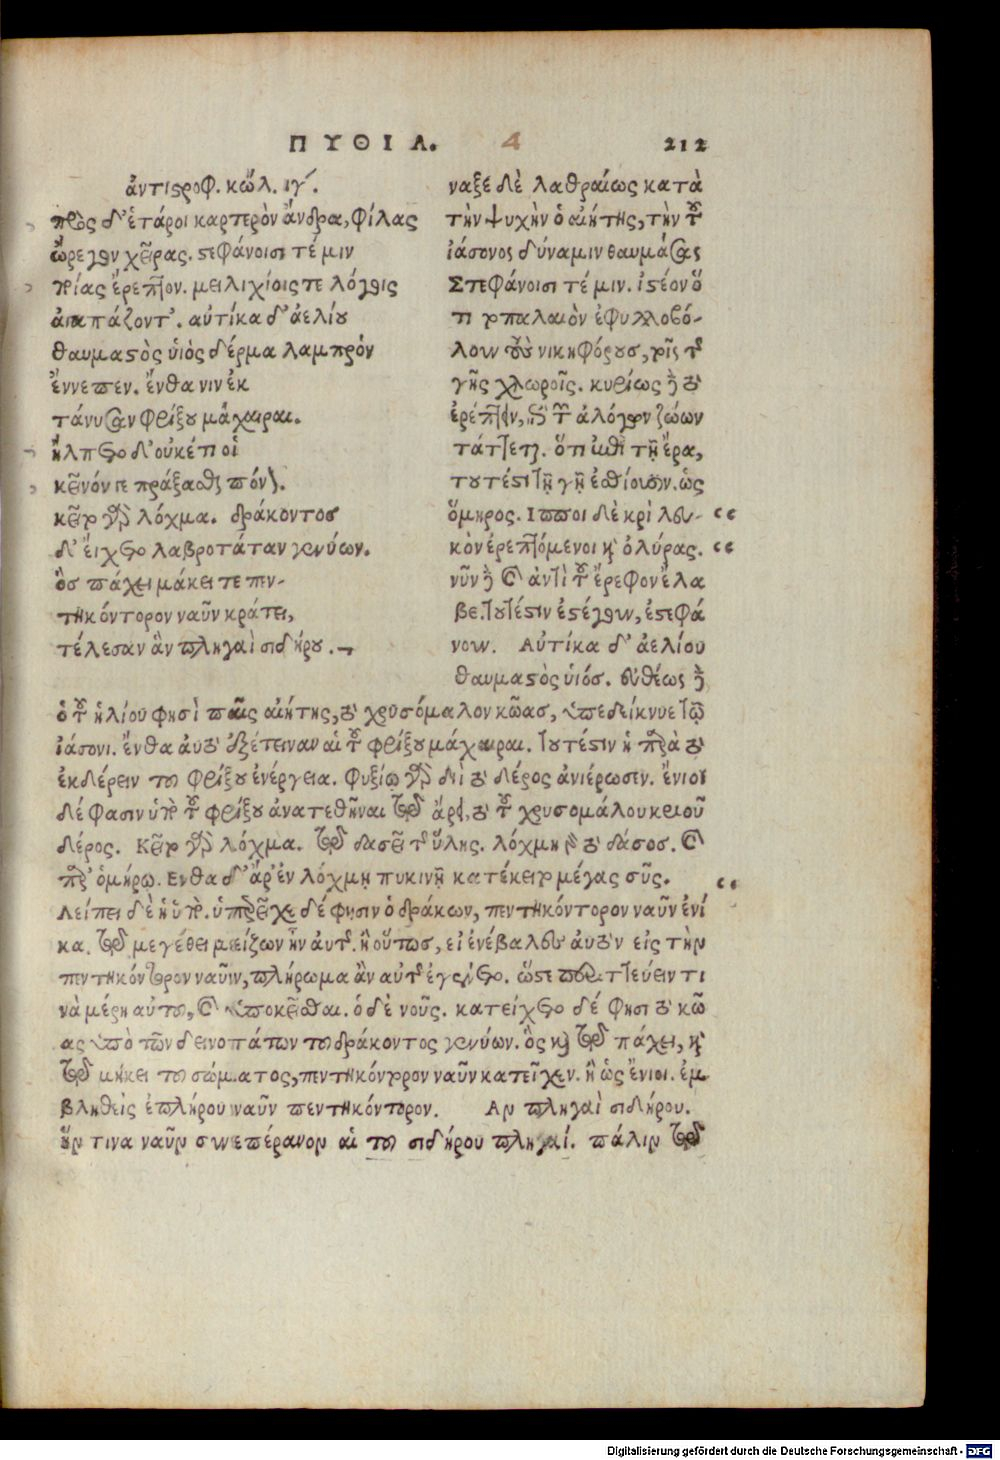 ΠΥΘΙΑ. 4 212
ἀντιστροφ. κώλ. ιγ΄.
πρὸς δ' ἑτάροι καρτερὸν ἄνδρα, φίλας
ὤρεγον χεῖρας. στεφάνοισι τέ μιν
ποίας ἔρεπτον. μειλιχίοις τε λόγοις
ἀγαπάζοντ'. αὐτίκα δ' ἀελίου
θαυμαστὸς ὑιὸς δέρμα λαμπρὸν
ἔννεπεν. ἔνθα νιν ἐκ
τάνυσαν φρίξου μάχαιραι.
ἤλπετο δ' οὐκέτι οἱ
κεῖνόν γε πράξασθαι πόνον.
κεῖτο γὰρ λόχμα. δράκοντος
δ' εἴχετο λαβροτάταν γενύων.
ὃς πάχει μάκει τε πεν-
τηκόντορον ναῦν κράτει,
τέλεσαν ἂν πληγαὶ σιδήρου.
ναξε δὲ λαθραίως κατὰ
τὴν ψυχὴν ὁ αἰήτης, τὴν τοῦ
ἰάσονος δύναμιν θαυμάσας
Στεφάνοισι τέ μιν. ἰστέον ὅ
τι τοπαλαιὸν ἐφυλλοβό-
λουν τοὺς νικηφόρους, τοῖς τῆς
γῆς χλωροῖς. κυρίως δὲ τὸ
ἐρέπτειν, ἐπὶ τῶν ἀλόγων ζώων
τάττεται. ὅτι ὠθεῖ τῇ ἔρα,
τουτέστι τῇ γῇ ἐσθίουσιν. ὡς
ὅμηρος. Ιπποι δὲ κρὶ λευ- “
κὸν ἐρεπτόμενοι καὶ ὀλύρας. “
νῦν δὲ καὶ ἀντὶ τοῦ ἔρεφον ἔλα
βε. τουτέστιν ἔστεγον, ἐστεφά
νουν. Αὐτίκα δ' ἀελίου
θαυμαστὸς ὑιός. εὐθέως δὲ
ὁ τοῦ ἡλίου φησὶ παῖς αἰήτης, τὸ χρυσόμαλον κῶας, ὑπεδείκνυε τῷ
ἰάσονι. ἔνθα αὐτὸ ἐξέτειναν αἱ τοῦ φρίξου μάχαιραι. τουτέστιν ἡ παρὰ τὸ
ἐκδέρειν του φρίξου ἐνέργεια. φυξίῳ γὰρ διὶ τὸ δέρος ἀνιέρωσιν. ἔνιοι
δέ φασιν ὑπὸ τοῦ φρίξου ἀνατεθῆναι τῷ ἄρει, τὸ τοῦ χρυσομάλου κριοῦ
δέρος. Κεῖτο γὰρ λόχμα. τῷ δασεῖ τῆς ὕλης. λόχμη γὰρ τὸ δάσος. καὶ
παρ' ὁμήρῳ. Ενθα δ' ἄρ' ἐν λόχμῃ πυκινῇ κατέκειτο μέγας σῦς. “
Λείπει δὲ ἡ ὑπὸ. ὑπερεῖχε δέ φησιν ὁ δράκων, πεντηκόντορον ναῦν ἐνί
κα. τῷ μεγέθει μείζων ἦν αὐτῆς. ἢ οὕτως, εἰ ἐνέβαλεν αὐτὸν εἰς τὴν
πεντηκόντορον ναῦιν, πλήρωμα ἂν αὐτῆς ἐγένετο. ὥστε περιττεύειν τι
νὰ μέρη αὐτου, καὶ ὑποκεῖσθαι. ὁ δὲ νοῦς. κατείχετο δέ φησι τὸ κῶ
ας ὑπὸ τῶν δεινοτάτων του δράκοντος γενύων. ὃς καὶ τῷ πάχει, καὶ
τῷ μήκει του σώματος, πεντηκόντορον ναῦν κατεῖχεν. ἢ ὡς ἔνιοι. ἐμ
βληθεὶς ἐπλήρου ναῦν πεντηκόντορον. Αν πληγαὶ σιδήρου.
ἥν τινα ναῦν συνεπέρανον αἱ του σιδήρου πληγαί. πάλιν τῷ
Digitalisierung gefördert durch die Deutsche Forschungsgemeinschaft - DFG